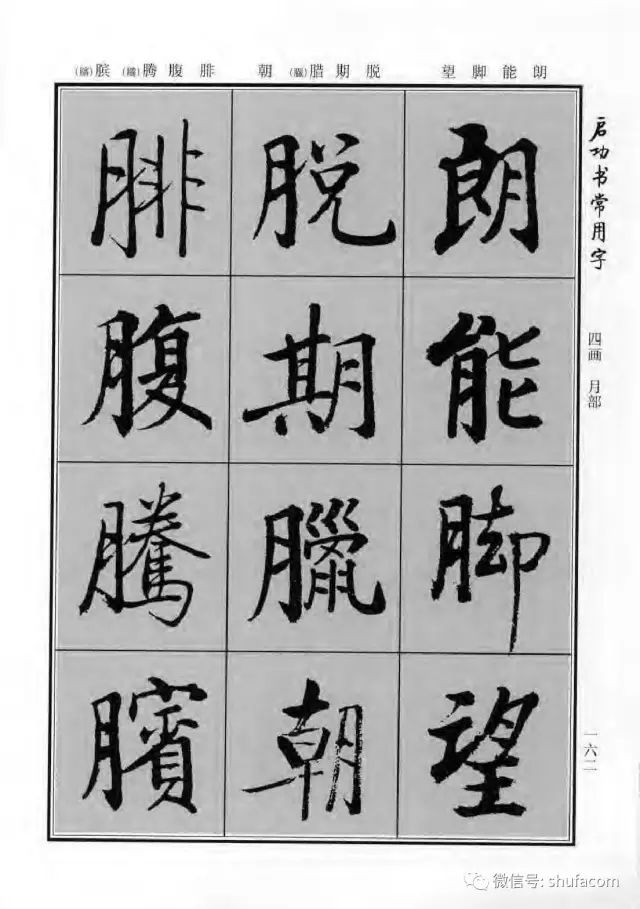 朗能脚望 脱期腊(臘)朝 腓腹腾(騰)膑(臏)
启功书常用字
四画 月部
朗能脚望
脱期臘朝
腓腹騰臏
一六二
微信号: shufacom